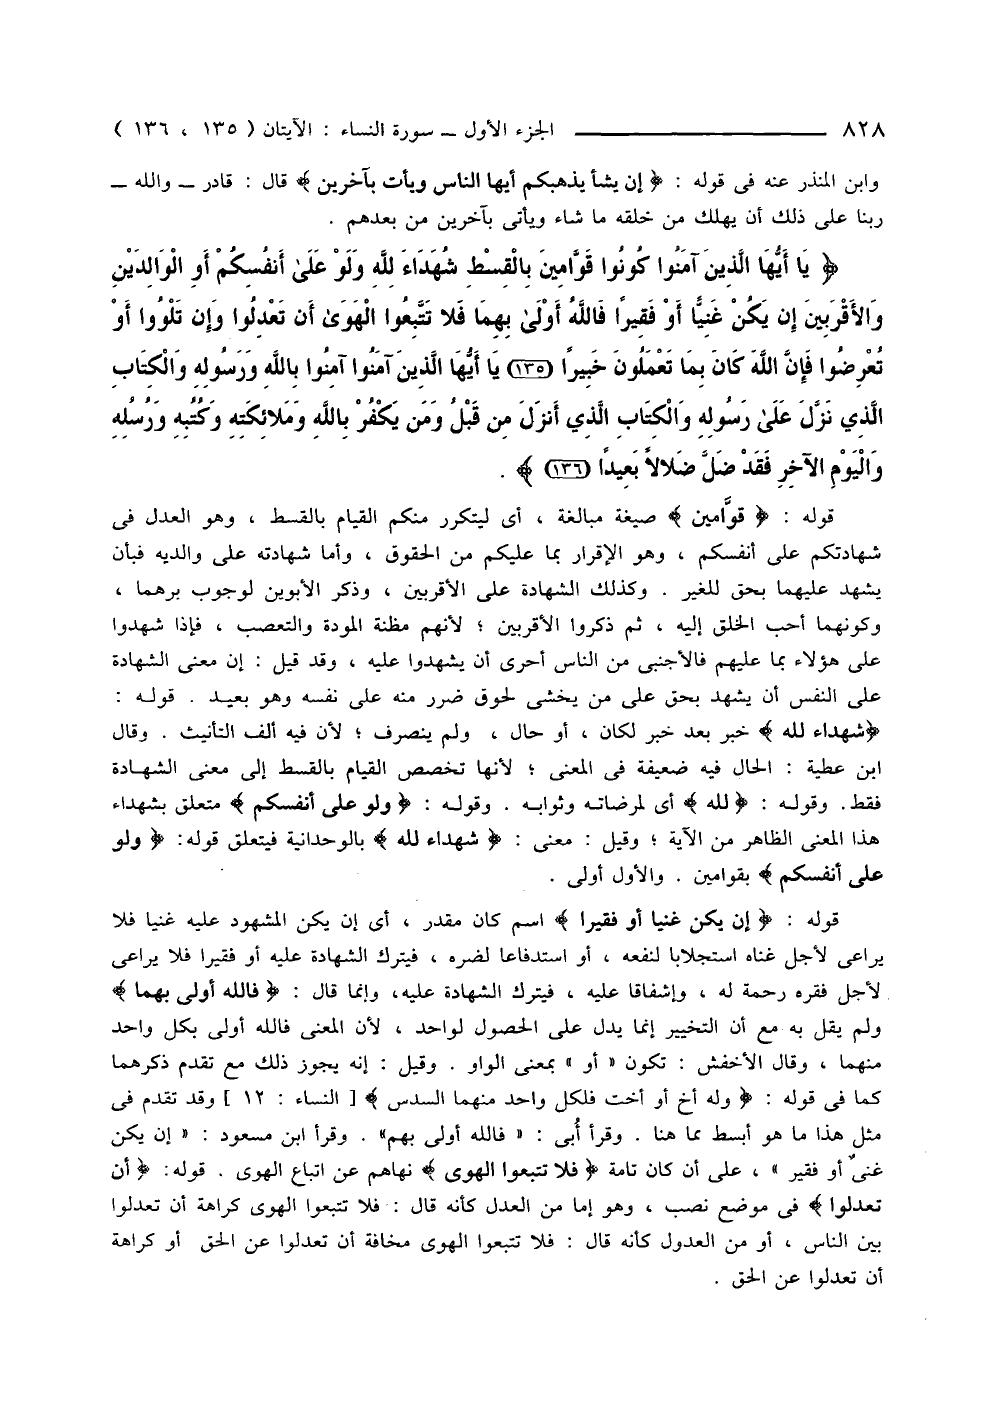 ٨٢٨ ــــــــــــــ الجزء الأول ــ سورة النساء : الآيتان ( ١٣٥ ، ١٣٦ )
وابن المنذر عنه فى قوله : ﴿ إن يشأ يذهبكم أيها الناس ويأت بآخرين ﴾ قال : قادر ــ والله ــ
ربنا على ذلك أن يهلك من خلقه ما شاء ويأتى بآخرين من بعدهم .
﴿ يَا أَيُّهَا الَّذِينَ آمَنُوا كُونُوا قَوَّامِينَ بِالْقِسْطِ شُهَدَاءَ لِلَّهِ وَلَوْ عَلَىٰ أَنفُسِكُمْ أَوِ الْوَالِدَيْنِ
وَالأَقْرَبِينَ إِن يَكُنْ غَنِيًّا أَوْ فَقِيرًا فَاللَّهُ أَوْلَىٰ بِهِمَا فَلا تَتَّبِعُوا الْهَوَىٰ أَن تَعْدِلُوا وَإِن تَلْوُوا أَوْ
تُعْرِضُوا فَإِنَّ اللَّهَ كَانَ بِمَا تَعْمَلُونَ خَبِيرًا (١٣٥) يَا أَيُّهَا الَّذِينَ آمَنُوا آمِنُوا بِاللَّهِ وَرَسُولِهِ وَالْكِتَابِ
الَّذِي نَزَّلَ عَلَىٰ رَسُولِهِ وَالْكِتَابِ الَّذِي أَنزَلَ مِن قَبْلُ وَمَن يَكْفُرْ بِاللَّهِ وَمَلائِكَتِهِ وَكُتُبِهِ وَرُسُلِهِ
وَالْيَوْمِ الآخِرِ فَقَدْ ضَلَّ ضَلالاً بَعِيدًا (١٣٦) ﴾ .
قوله : ﴿ قوَّامين ﴾ صيغة مبالغة ، أى ليتكرر منكم القيام بالقسط ، وهو العدل فى
شهادتكم على أنفسكم ، وهو الإقرار بما عليكم من الحقوق ، وأما شهادته على والديه فبأن
يشهد عليهما بحق للغير . وكذلك الشهادة على الأقربين ، وذكر الأبوين لوجوب برهما ،
وكونهما أحب الخلق إليه ، ثم ذكروا الأقربين ؛ لأنهم مظنة المودة والتعصب ، فإذا شهدوا
على هؤلاء بما عليهم فالأجنبى من الناس أحرى أن يشهدوا عليه ، وقد قيل : إن معنى الشهادة
على النفس أن يشهد بحق على من يخشى لحوق ضرر منه على نفسه وهو بعيد . قوله :
﴿شهداء لله ﴾ خبر بعد خبر لكان ، أو حال ، ولم ينصرف ؛ لأن فيه ألف التأنيث . وقال
ابن عطية : الحال فيه ضعيفة فى المعنى ؛ لأنها تخصص القيام بالقسط إلى معنى الشهادة
فقط. وقوله : ﴿ لله ﴾ أى لمرضاته وثوابه . وقوله : ﴿ ولو على أنفسكم ﴾ متعلق بشهداء
هذا المعنى الظاهر من الآية ؛ وقيل : معنى : ﴿ شهداء لله ﴾ بالوحدانية فيتعلق قوله: ﴿ ولو
على أنفسكم ﴾ بقوامين . والأول أولى .
قوله : ﴿ إن يكن غنيا أو فقيرا ﴾ اسم كان مقدر ، أى إن يكن المشهود عليه غنيا فلا
يراعى لأجل غناه استجلابا لنفعه ، أو استدفاعا لضره ، فيترك الشهادة عليه أو فقيرا فلا يراعى
لأجل فقره رحمة له ، وإشفاقا عليه ، فيترك الشهادة عليه، وإنما قال : ﴿ فالله أولى بهما ﴾
ولم يقل به مع أن التخيير إنما يدل على الحصول لواحد ، لأن المعنى فالله أولى بكل واحد
منهما ، وقال الأخفش : تكون « أو » بمعنى الواو . وقيل : إنه يجوز ذلك مع تقدم ذكرهما
كما فى قوله : ﴿ وله أخ أو أخت فلكل واحد منهما السدس ﴾ [ النساء : ١٢ ] وقد تقدم فى
مثل هذا ما هو أبسط مما هنا . وقرأ أُبى : « فالله أولى بهم» . وقرأ ابن مسعود : « إن يكن
غنىٌ أو فقير » ، على أن كان تامة ﴿ فلا تتبعوا الهوى ﴾ نهاهم عن اتباع الهوى . قوله: ﴿ أن
تعدلوا ﴾ فى موضع نصب ، وهو إما من العدل كأنه قال : فلا تتبعوا الهوى كراهة أن تعدلوا
بين الناس ، أو من العدول كأنه قال : فلا تتبعوا الهوى مخافة أن تعدلوا عن الحق أو كراهة
أن تعدلوا عن الحق .